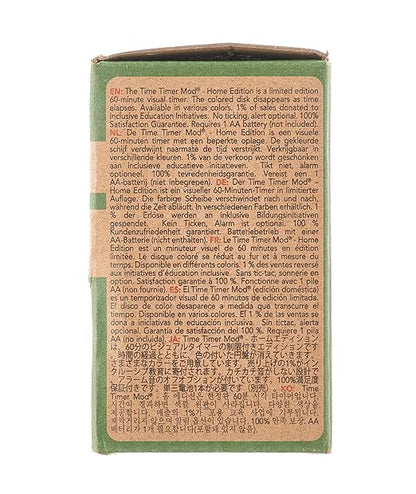 EN: The Time Timer Mod® - Home Edition is a limited edition
60-minute visual timer. The colored disk disappears as time
elapses. Available in various colors. 1% of sales donated to
Inclusive Education Initiatives. No ticking, alert optional. 100%
Satisfaction Guarantee. Requires 1 AA battery (not included).
NL: De Time Timer Mod® - Home Edition is een visuele
60-minuten timer met een beperkte oplage. De gekleurde
schijf verdwijnt naarmate de tijd verstrijkt. Verkrijgbaar in
verschillende kleuren. 1% van de verkoop wordt geschonken
aan inclusieve educatieve initiatieven. Tikt niet, alarm
optioneel. 100% tevredenheidsgarantie. Vereist een 1
AA-batterij (niet inbegrepen). DE: Der Time Timer Mod® -
Home Edition ist ein visueller 60-Minuten-Timer in limitierter
Auflage. Die farbige Scheibe verschwindet nach und nach,
während die Zeit abläuft. In verschiedenen Farben erhältlich. 1
% der Erlöse werden an inklusive Bildungsinitiativen
gespendet. Kein Ticken, Alarm ist optional. 100 %
Kundenzufriedenheit garantiert. Batteriebetrieb mit einer
AA-Batterie (nicht enthalten). FR: Le Time Timer Mod® - Home
Edition est un minuteur visuel de 60 minutes en édition
limitée. Le disque coloré se réduit au fur et à mesure du
temps. Disponible en différents coloris. 1 % des ventes reversé
aux initiatives d'éducation inclusive. Sans tic-tac, sonnerie en
option. Satisfaction garantie à 100 %. Fonctionne avec 1 pile
AA (non fournie). ES: El Time Timer Mod® (edición domestica)
es un temporizador visual de 60 minutos de edición limitada.
El disco de color desaparece a medida que transcurre el
tiempo. Disponible en varios colores. El 1 % de las ventas se
dona a iniciativas de educación inclusiva. Sin tictac, alerta
opcional. Garantía de satisfacción del 100 %. Requiere 1 pila
AA (no incluida). JA: Time Timer Mod® - ホームエディション
は、60分のビジュアルタイマーの制限付きエディションです
。時間の経過とともに、色の付いた円盤が消えていきます。
さまざまなカラーをご用意しています。売り上げの1%がイン
クルーシブ教育に寄付されます。カチカチ音がしない設計で
、アラーム音のオフオプションが付いています。100%満足度
保証付きです。単三電池1本が必要（別売）です。 KO: Time
Timer Mod® - 홈 에디션은 한정판 60분 시각 타이머입니다.
시간이 경과하면 색깔 원판이 사라집니다. 다양한 색상으로
제공됩니다. 매출의 1%가 포용 교육 사업에 기부됩니다.
째깍거리지 않으며 알림은 옵션입니다. 100% 만족 보장. AA
배터리 1개가 필요합니다(포함돼 있지 않음).